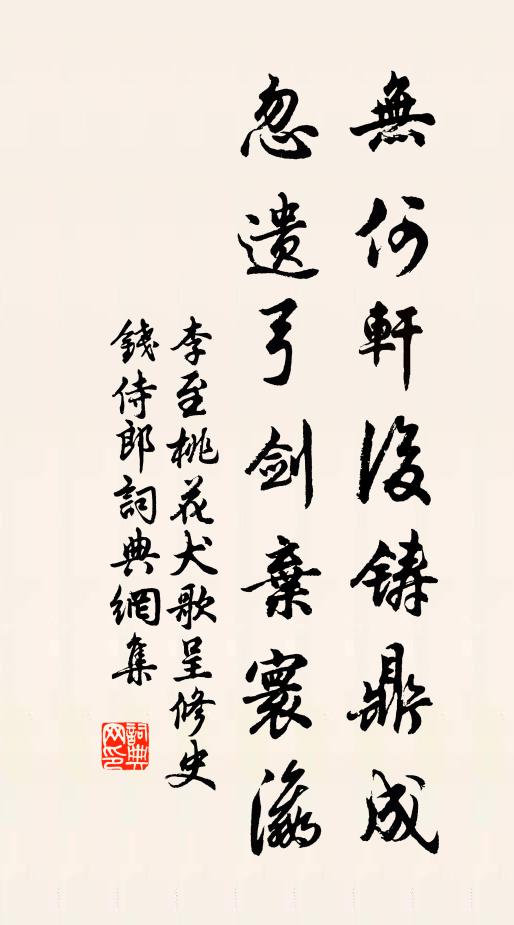 無何軒後鑄鼎成
忽遺弓劍棄寰瀛
李至桃花犬歌呈修史
錢侍郎詞典網集
詞典
网印